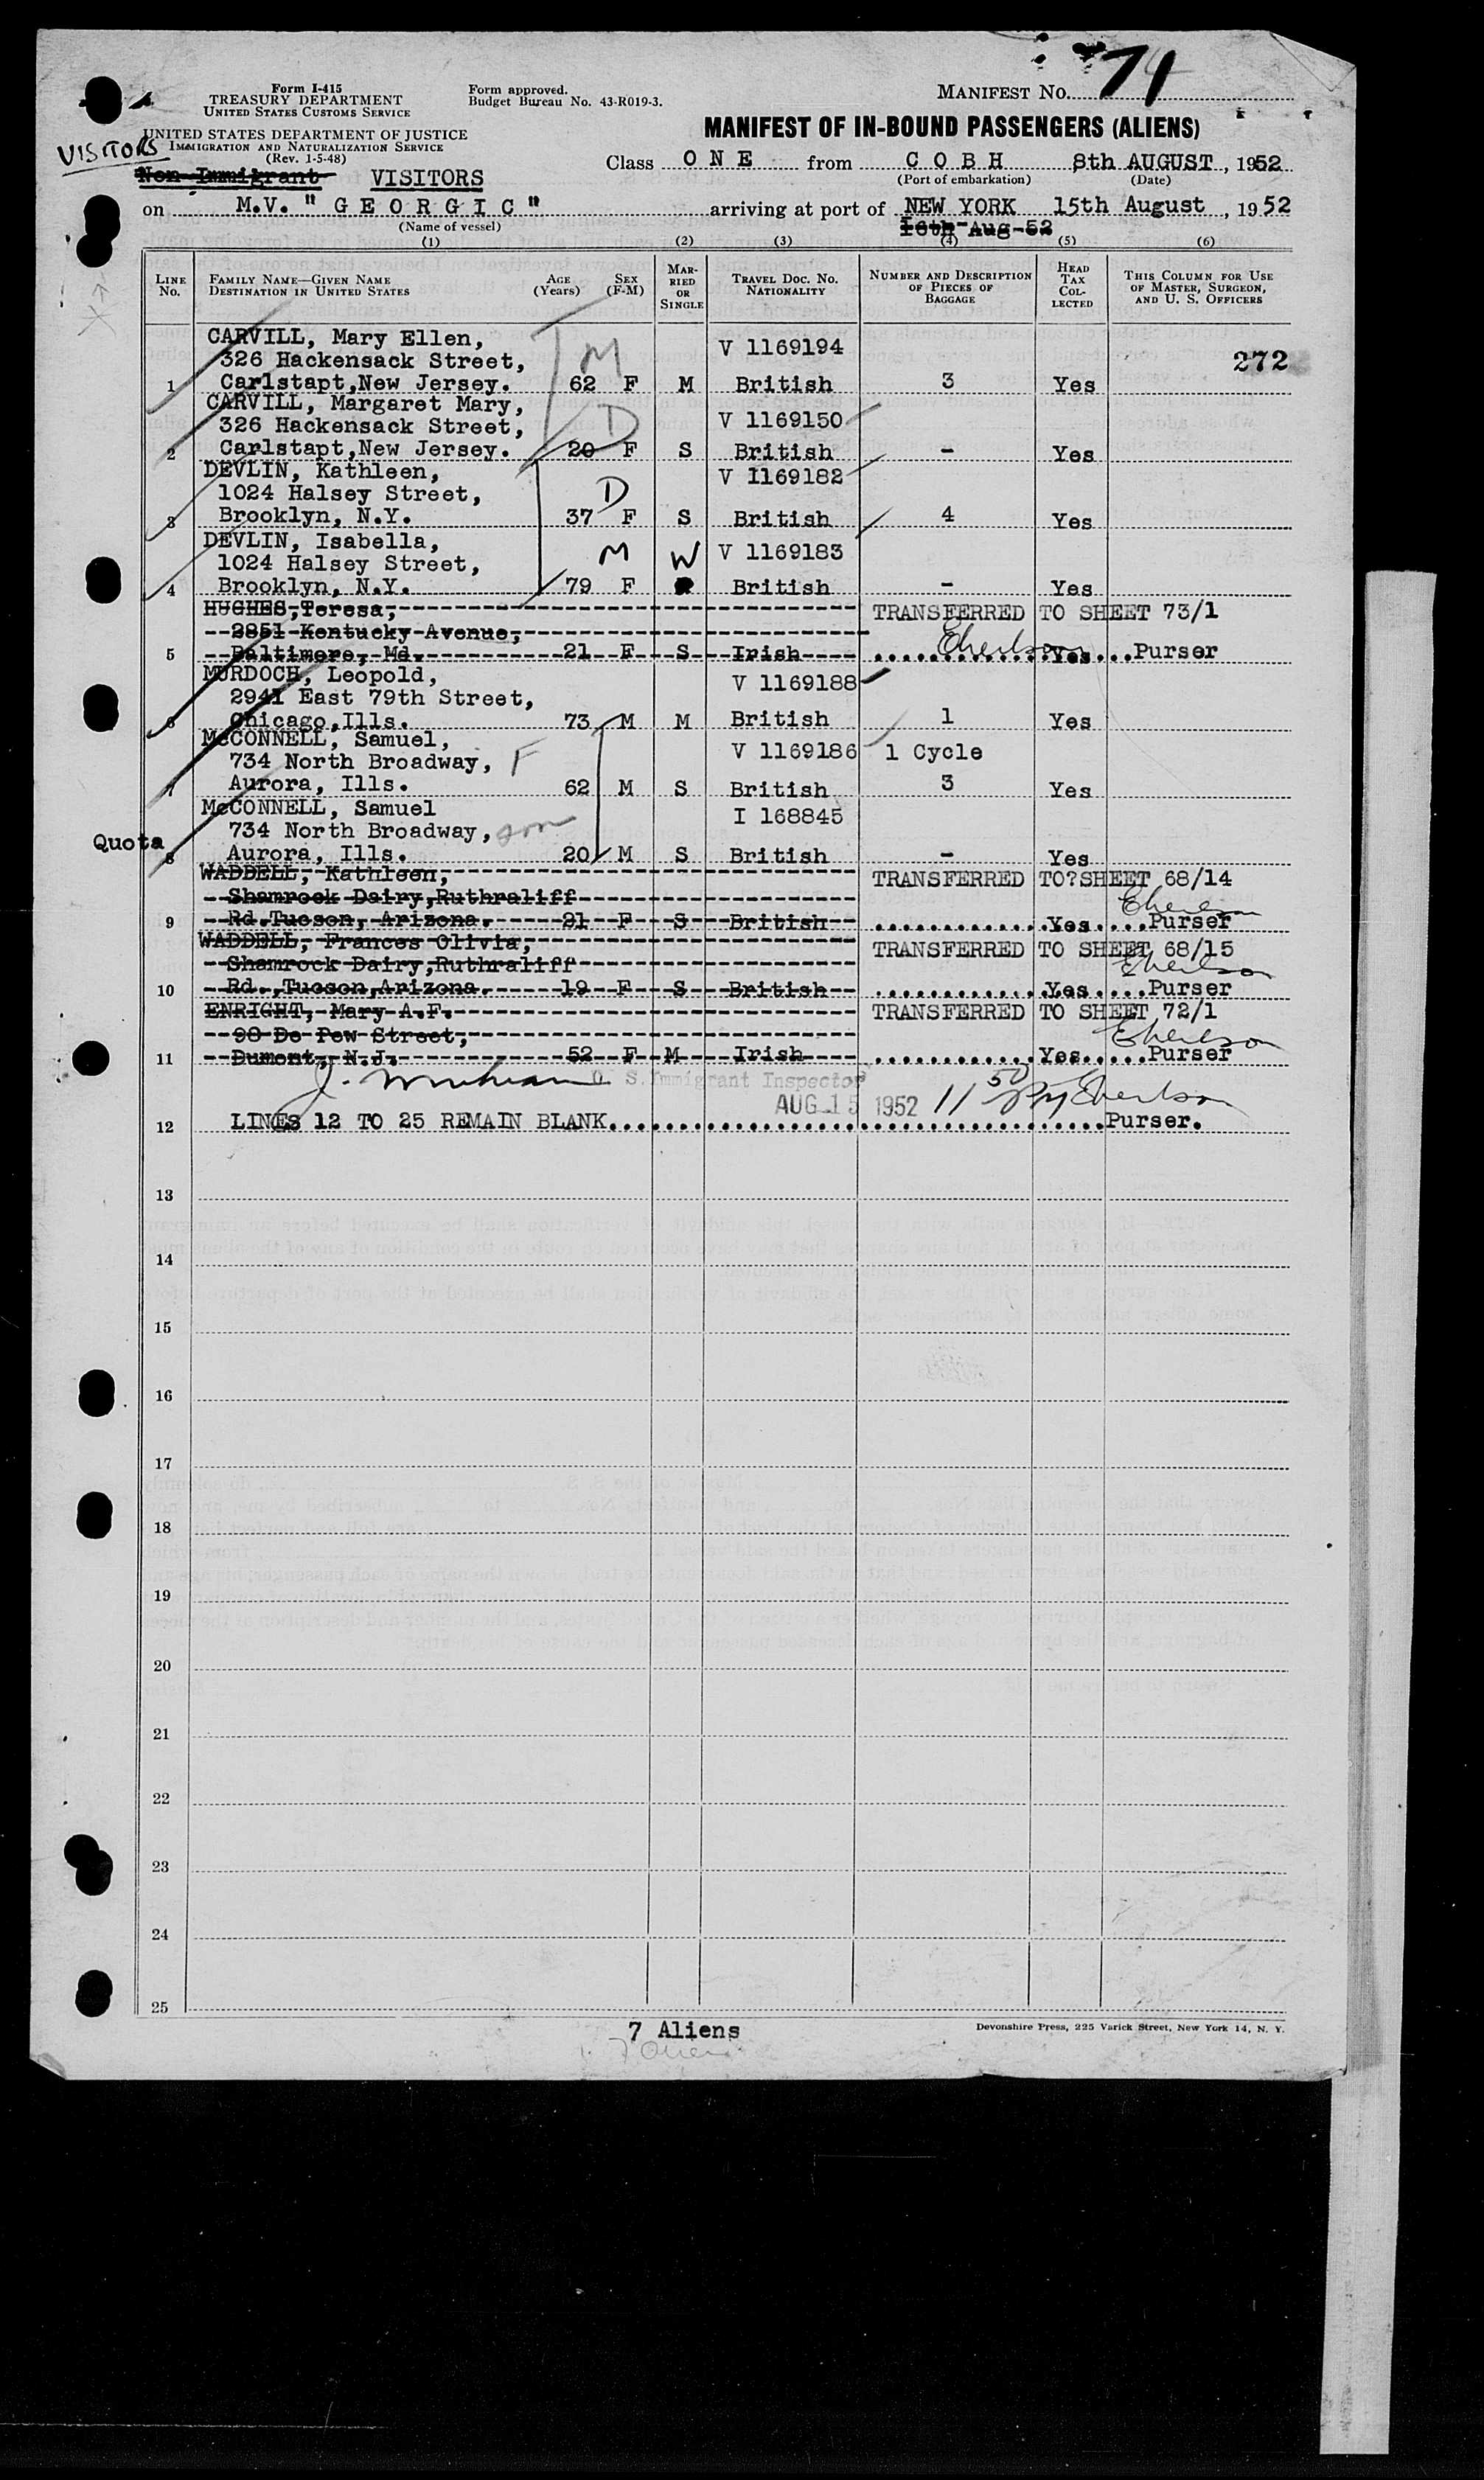 Form I-415
TREASURY DEPARTMENT
UNITED STATES CUSTOMS SERVICE
Form approved.
Budget Bureau No. 43-R019-3.
MANIFEST NO. 71
UNITED STATES DEPARTMENT OF JUSTICE
IMMIGRATION AND NATURALIZATION SERVICE
(Rev. 1-5-48)
VISITORS
MANIFEST OF IN-BOUND PASSENGERS (ALIENS)
Class ONE from COBH 8th AUGUST, 1952
(Port of embarkation) (Date)
Non Immigrant VISITORS
on M.V. "GEORGIC" arriving at port of NEW YORK 15th August, 1952
(Name of vessel) 16th-Aug-52
(1) (2) (3) (4) (5) (6)
LINE No. FAMILY NAME—GIVEN NAME DESTINATION IN UNITED STATES AGE (Years) SEX (F-M) MARRIED OR SINGLE TRAVEL DOC. NO. NATIONALITY NUMBER AND DESCRIPTION OF PIECES OF BAGGAGE HEAD TAX COLLECTED THIS COLUMN FOR USE OF MASTER, SURGEON, AND U. S. OFFICERS
CARVILL, Mary Ellen, M V 1169194
326 Hackensack Street, 272
1 Carlstapt,New Jersey. 62 F M British 3 Yes
CARVILL, Margaret Mary, D
326 Hackensack Street, V 1169150
2 Carlstapt,New Jersey. 20 F S British - Yes
DEVLIN, Kathleen, V 1169182
1024 Halsey Street, D
3 Brooklyn, N.Y. 37 F S British 4 Yes
DEVLIN, Isabella,
1024 Halsey Street, M W V 1169183
4 Brooklyn, N.Y. 79 F British - Yes
HUGHES,Teresa, TRANSFERRED TO SHEET 73/1
2851 Kentucky Avenue,
5 Baltimore, Md. 21 F S Irish Yes Purser
MURDOCH, Leopold, V 1169188
2941 East 79th Street,
6 Chicago,Ills. 73 M M British 1 Yes
McCONNELL, Samuel,
734 North Broadway, F V 1169186 1 Cycle
7 Aurora, Ills. 62 M S British 3 Yes
McCONNELL, Samuel I 168845
734 North Broadway, son
Quota
8 Aurora, Ills. 20 M S British - Yes
WADDELL, Kathleen, TRANSFERRED TO?SHEET 68/14
Shamrock Dairy,Ruthraliff
9 Rd.Tucson, Arizona. 21 F S British Yes Purser
WADDELL, Frances Olivia, TRANSFERRED TO SHEET 68/15
Shamrock Dairy,Ruthraliff
10 Rd.,Tucson,Arizona. 19 F S British Yes Purser
ENRIGHT, Mary A.F. TRANSFERRED TO SHEET 72/1
90 De Pew Street,
11 Dumont, N.J. 52 F M Irish Yes Purser
U. S. Immigrant Inspector
AUG 15 1952 11 50
12 LINES 12 TO 25 REMAIN BLANK Purser.
13
14
15
16
17
18
19
20
21
22
23
24
25
7 Aliens
Devonshire Press, 225 Varick Street, New York 14, N. Y.
7 Aliens